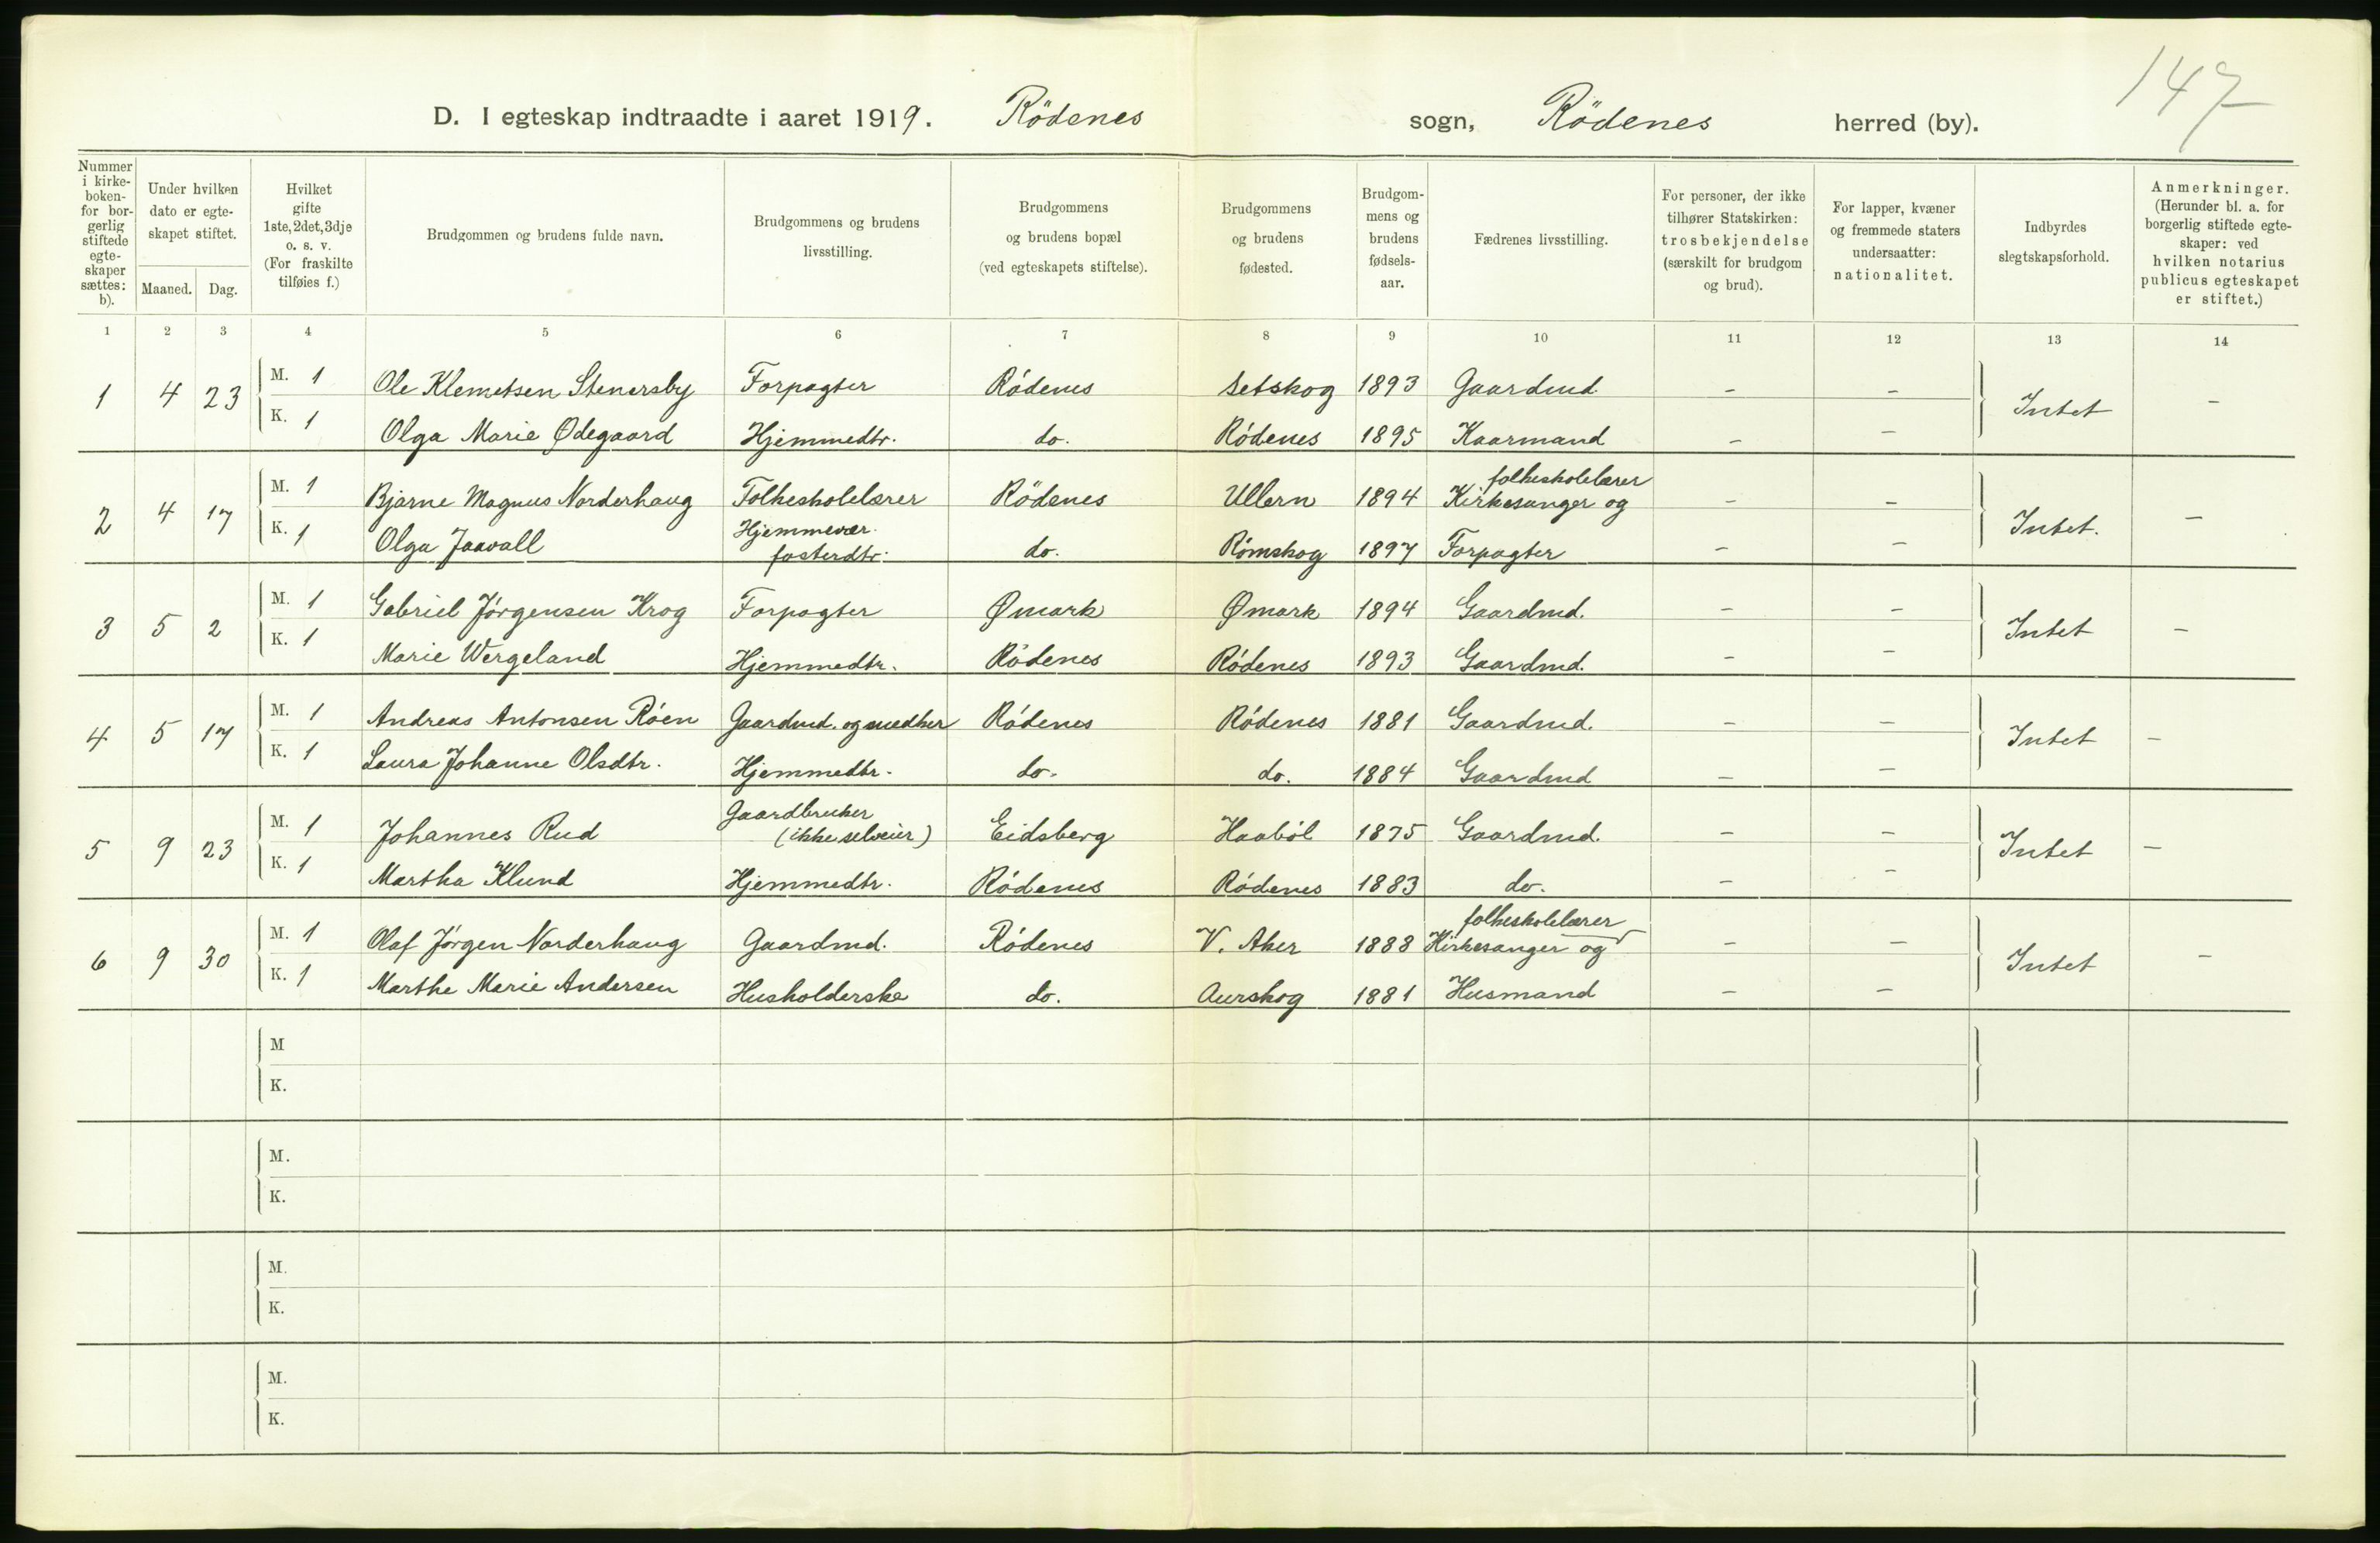 147
D. I egteskap indtraadte i aaret 1919. Rödenes sogn, Rödenes herred (by).
Nummer i kirke- boken- for bor- gerlig stiftede egte- skaper sættes: b).
Under hvilken dato er egte- skapet stiftet.
Maaned. Dag.
Hvilket gifte 1ste, 2det, 3dje o. s. v. (For fraskilte tilføies f.)
Brudgommen og brudens fulde navn.
Brudgommens og brudens livsstilling.
Brudgommens og brudens bopæl (ved egteskapets stiftelse).
Brudgommens og brudens fødested.
Brudgom- mens og brudens fødsels- aar.
Fædrenes livsstilling.
For personer, der ikke tilhører Statskirken: trosbekjendelse (særskilt for brudgom og brud).
For lapper, kvæner og fremmede staters undersaatter: nationalitet.
Indbyrdes slegtskapsforhold.
Anmerkninger. (Herunder bl. a. for borgerlig stiftede egte- skaper: ved hvilken notarius publicus egteskapet er stiftet.)
1 2 3 4 5 6 7 8 9 10 11 12 13 14
1 4 23 M. 1 Ole Klemetsen Stenersby Forpagter Rödenes Setskog 1893 Gaardmd. – – Intet –
K. 1 Olga Marie Ødegaard Hjemmedtr. do. Rödenes 1895 Kaarmand – –
2 4 17 M. 1 Bjarne Magnus Norderhaug Folkeskolelærer Rödenes Ullern 1894 Kirkesanger og folkeskolelærer – – Intet. –
K. 1 Olga Jaavall Hjemmevær. fosterdtr. do. Römskog 1897 Forpagter – –
3 5 2 M. 1 Gabriel Jörgensen Krog Forpagter Ømark Ømark 1894 Gaardmd. – – Intet –
K. 1 Marie Wergeland Hjemmedtr. Rödenes Rödenes 1893 Gaardmd. – –
4 5 17 M. 1 Andreas Antonsen Röen Gaardmd. og snedker Rödenes Rödenes 1881 Gaardmd. – – Intet –
K. 1 Laura Johanne Olsdtr. Hjemmedtr. do. do. 1884 Gaardmd – –
5 9 23 M. 1 Johannes Rud Gaardbruker (ikke selveier) Eidsberg Haaböl 1875 Gaardmd. – – Intet –
K. 1 Martha Klund Hjemmedtr. Rödenes Rödenes 1883 do. – –
6 9 30 M. 1 Olaf Jörgen Norderhaug Gaardmd. Rödenes V. Aker 1888 Kirkesanger og folkeskolelærer – – Intet –
K. 1 Marthe Marie Andersen Husholderske do. Aurskog 1881 Husmand – –
M
K.
M.
K.
M.
K.
M.
K.